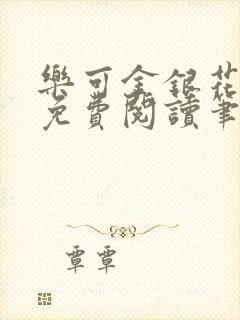 樂可金銀花
免費閱讀筆
覃覃